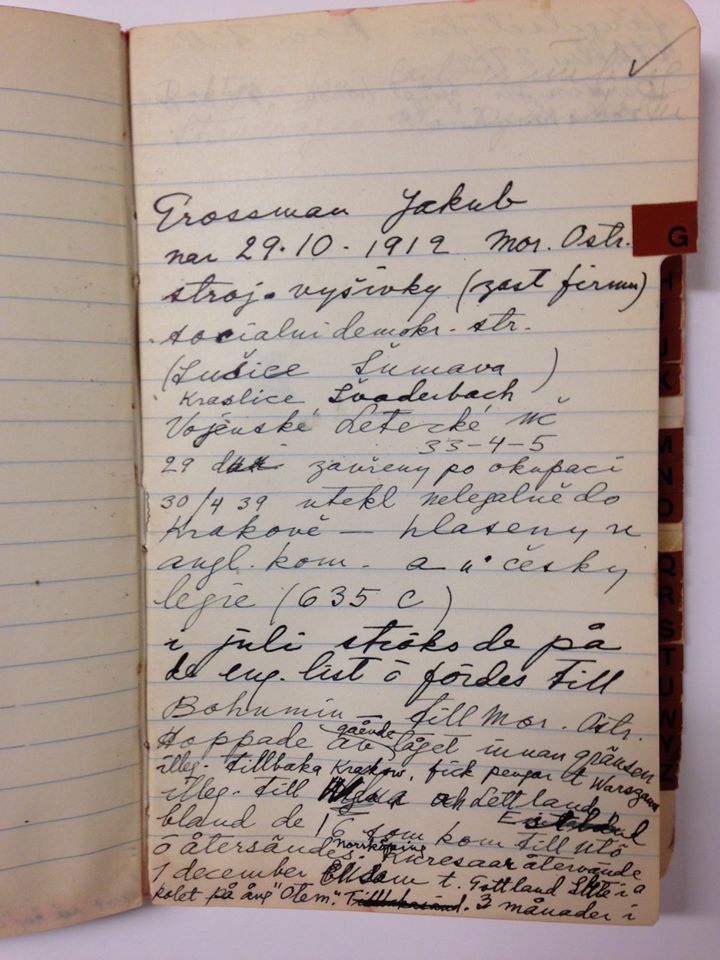 Grossman Jakub
nar 29.10.1912 Mor. Ostr.
stroj. vyšivky (zast firmu)
socialni demokr. str.
(Sušice Šumava)
Kraslice Švaderbach
Vojenské Letecké
33-4-5
29 zavřeny po okupaci
30/4 39 utekl nelegalně do
Krakově — hlaseny u
angl. kom. a u česky
legie (635 C)
i juli ströks de på
de eng. list ö fördes till
Bohumin — till Mor. Ostr.
gående
Hoppade av tåget innan gränsen
illeg. tillbaka Krakow, fick pengar t Warszawa
illeg. till och Lettland
Estland
bland de 16 som kom till utö
ö återsändes. Kuresaar återvände
Norrköping
1 december ensam t. Gottland Slite i a
kolet på ång "Otem". 3 månader i
G
H
I
J
K
M
N
O
Q
R
S
T
U
W
Y
Z